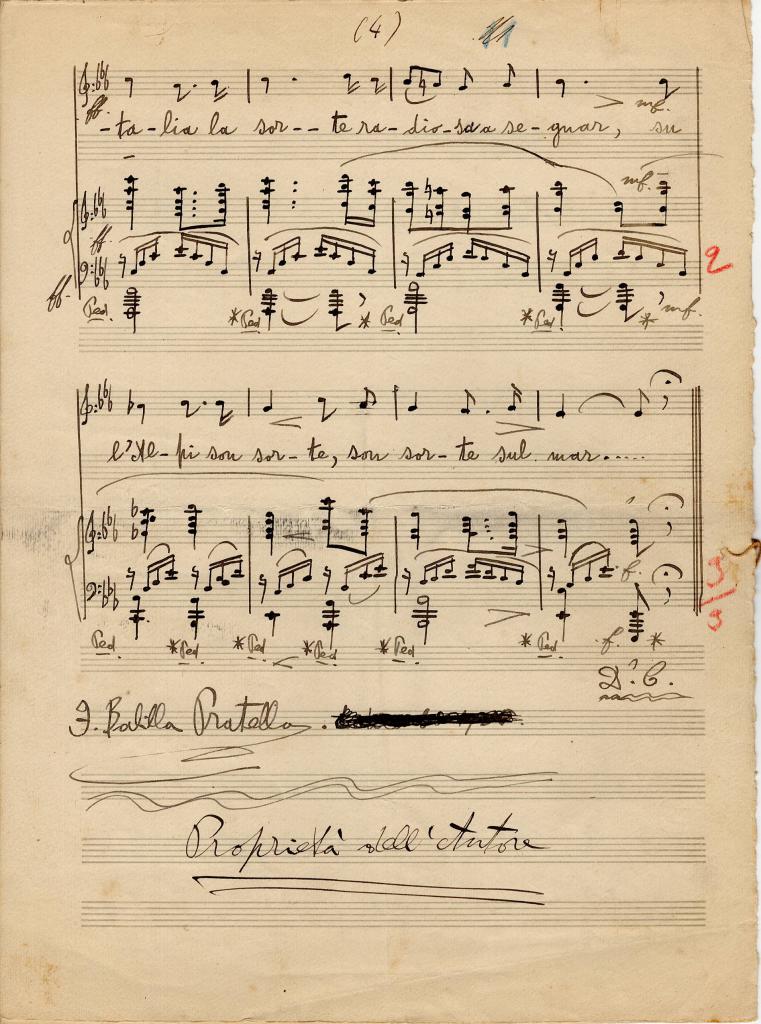 (4)
ff.
-ta-lia la sor--te ra-dio-sa a se-gnar, su
mf.
mf.
ff.
ff.
Ped. *Ped * Ped *Ped * mf.
2
l'Al-pi son sor-te, son sor-te sul mar.....
f.
3/3
Ped *Ped. *Ped *Ped. *Ped *Ped f. *
D.C.
F. Balilla Pratella.
Proprietà dell'Autore